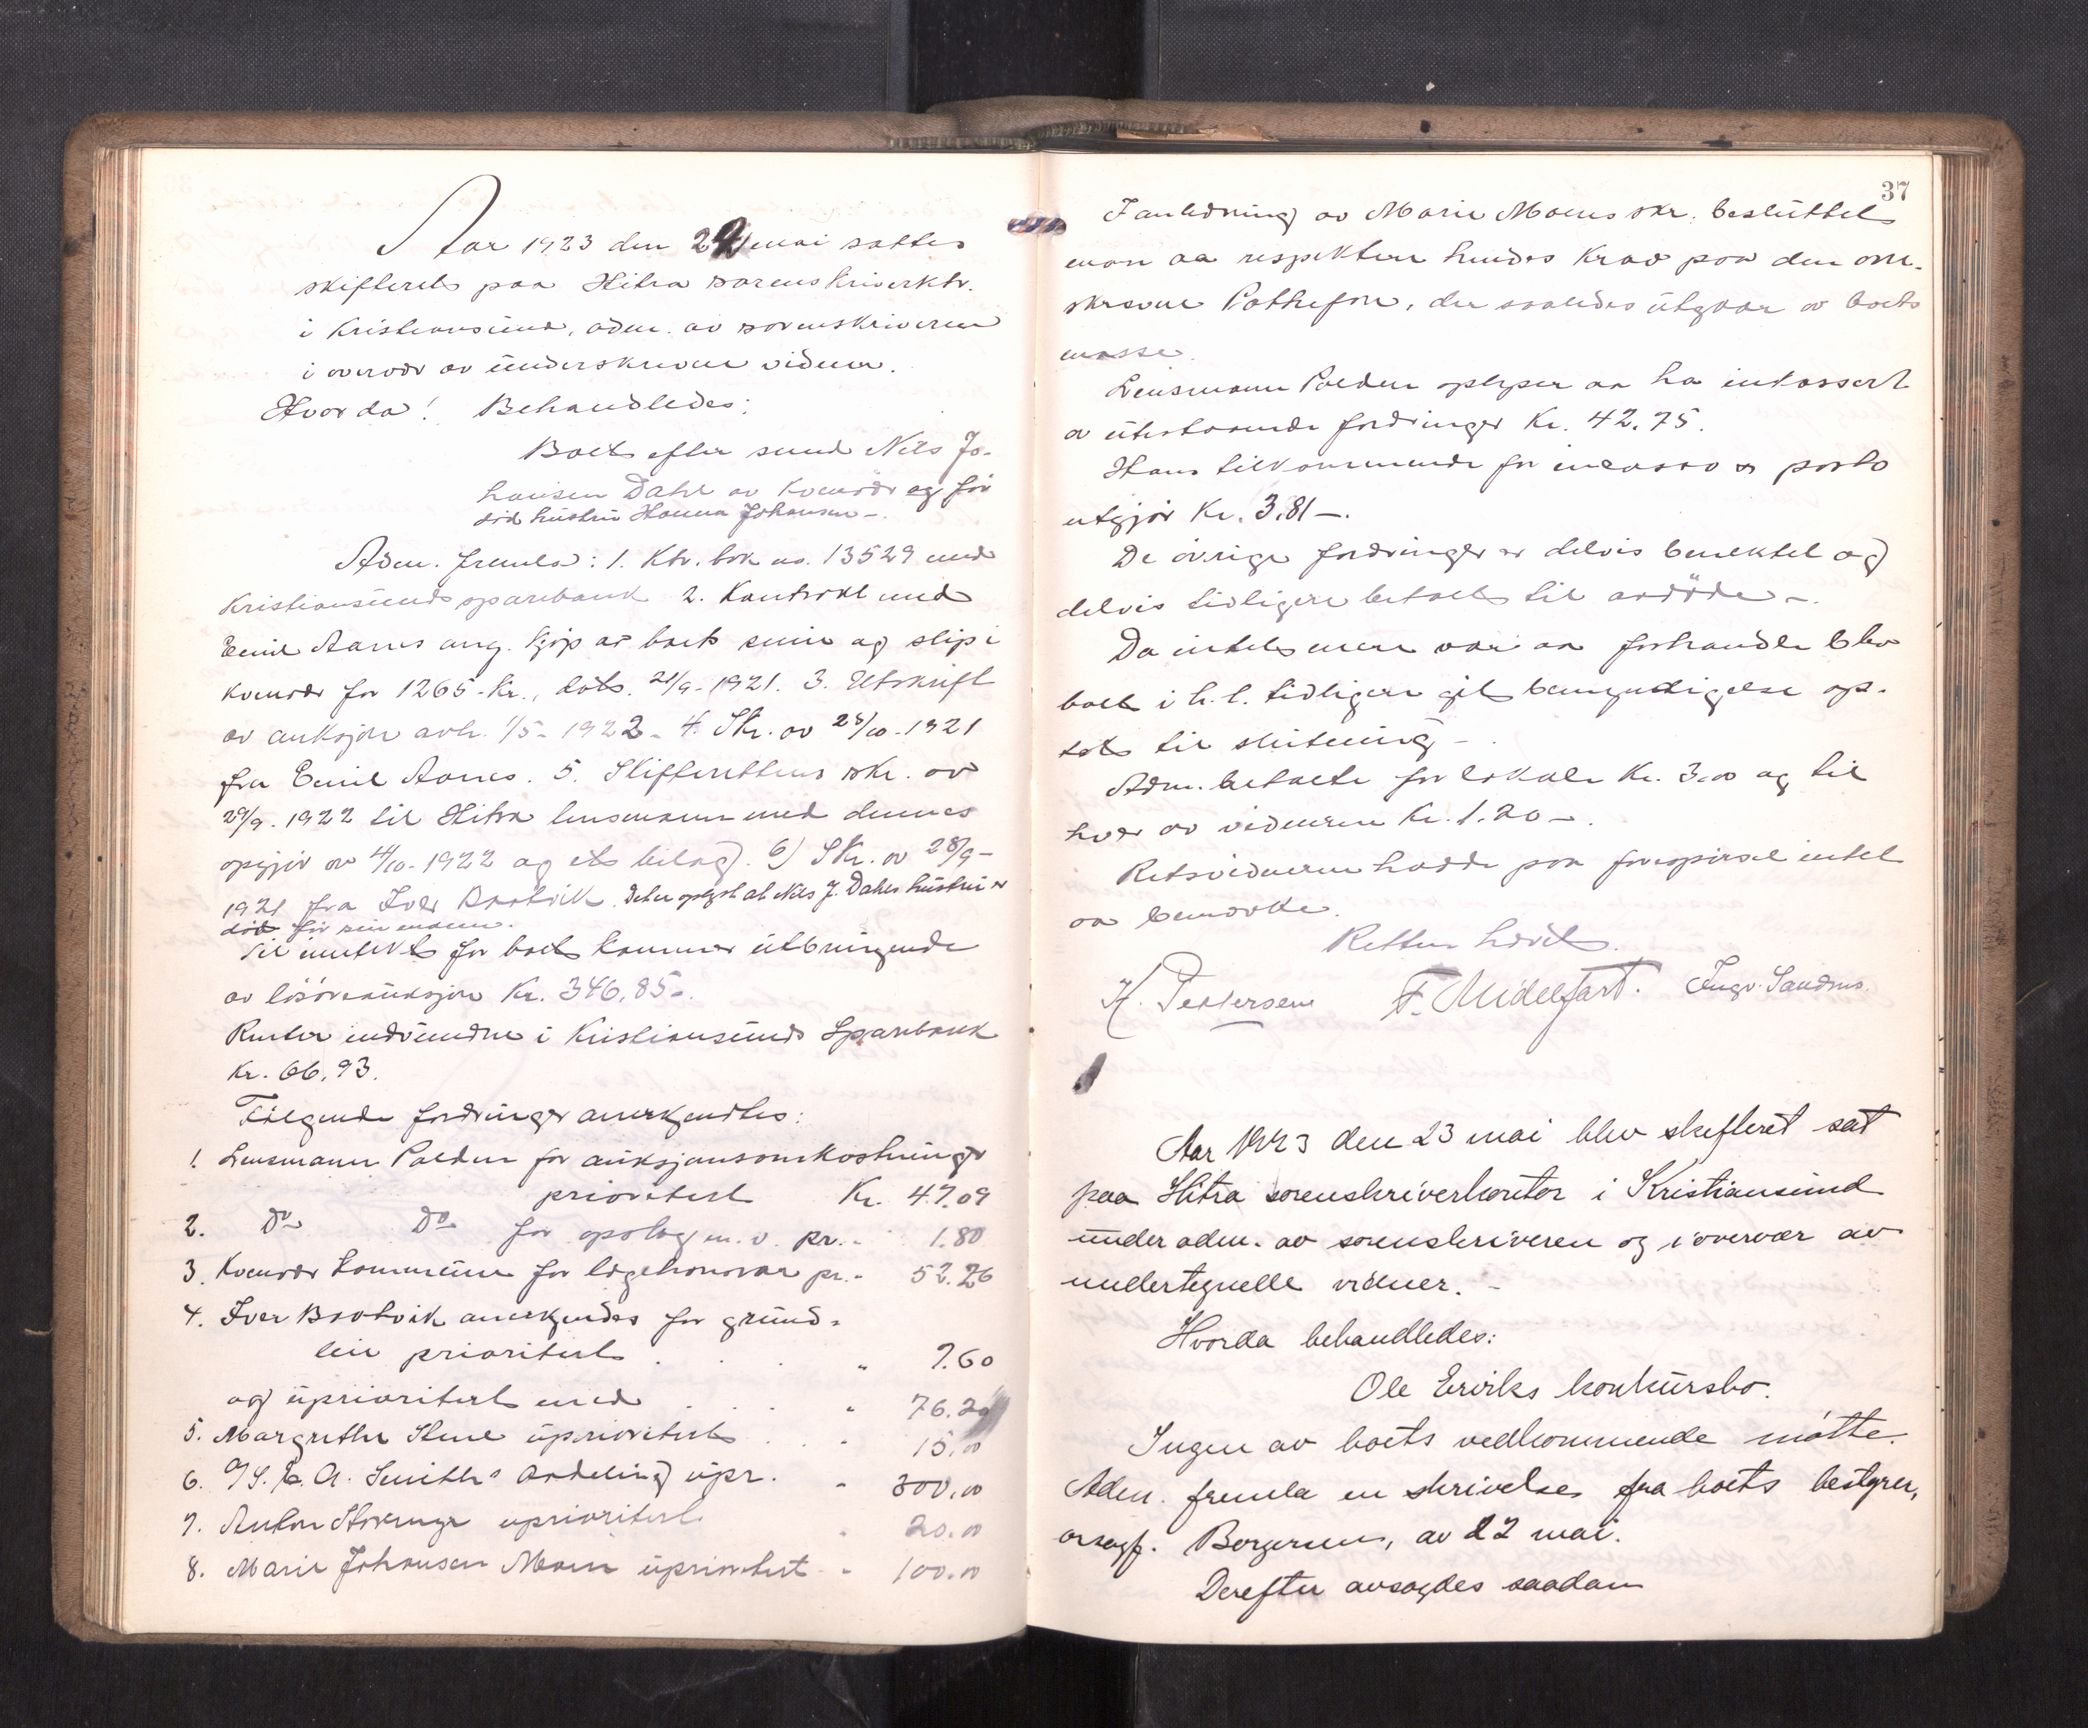 Aar 1923 den 22 mai sattes
skifteret paa Hitra sorenskriverktr.
i Kristiansund, adm. av sorenskriveren
i overvær av underskrevne vidner.
Hvorda! Behandledes:
Boet efter snmd Nils Jo-
hansen Dahl av Kvenvær og før
død hustru Hanna Johansen –.
Adm. fremla: 1. Ktr. bok no. 13529 med
Kristiansunds sparebank 2. Kontrakt med
Emil Aanes ang. kjøp av boets snm og slip i
Kvenvær for 1265 – Kr., dats. 21/9 – 1921. 3. Utskrift
av auksjon avh. 1/5 – 1922 – 4. Skr. av 28/10 – 1921
fra Emil Aanes. 5. Skifterettens skr. av
29/9. 1922 til Hitra lensmann med dennes
opgjør av 4/10 – 1922 og ets bilag. 6) Skr. av 28/9 –
1921 fra Iver Brotvik. Det er oplyst at Nils J. Dahls hustru er
død før sin mann.
Til inntekt for boet kommer utbringende
av løsøreauksjon Kr. 346,85 –.
Renter indvundne i Kristiansunds Sparebank
Kr. 66,93.
Følgende fordringer anerkjendtes:
1. Lensmann Palden for auksjonsomkostninger
prioritert Kr. 47.09
2. Do Do for opslag m. v. pr. – " 1.80
3. Kvenvær Kommune for lægehonorar pr. – " 52.26
4. Iver Brotvik anerkjendes for grund-
leie prioritert . . . " 7.60
og uprioritert med . . . " 76.20
5. Margrethe Stene uprioritert . . " 15,00
6. A/S. E. A. Smiths avdeling upr. " 300,00
7. Anton Storunge uprioritert " 20.00
8. Marie Johansen Moen uprioritert – " 100.00
37
I anledning av Marie Moens skr. besluttet
man aa respektere hendes krav paa den om-
skrevne Pathefon, der saaledes utgaar av boets
masse.
Lensmann Palden oplyser aa ha inkassert
av utestaaende fordringer Kr. 42.75.
Hans tilkommende for incasso og porto
utgjør Kr. 3.81 –.
De øvrige fordringer er delvis benektet og
delvis tidligere betalt til avdøde –.
Da intet mere var aa forhandle blev
boet i h. t. tidligere git bemyndigelse op-
tat til slutning –.
Adm. betalte for lokale Kr. 3.00 og til
hver av vidnerne Kr. 1.20 –.
Retsvidnerne hadde paa forespørsel intet
aa bemerke.
Retten hævet.
K. Pettersen F. Midelfart. Ingv. Sandnes.
Aar 1923 den 23 mai blev skifteret sat
paa Hitra sorenskriverkontor i Kristiansund
under adm. av sorenskriveren og i overvær av
undertegnede vidner. –
Hvorda behandledes:
Ole Erviks konkursbo.
Ingen av boets vedkommende møtte.
Adm. fremla en skrivelse fra boets bestyrer,
orsagf. Borgersen, av 22 mai.
Derefter avsagdes saadan